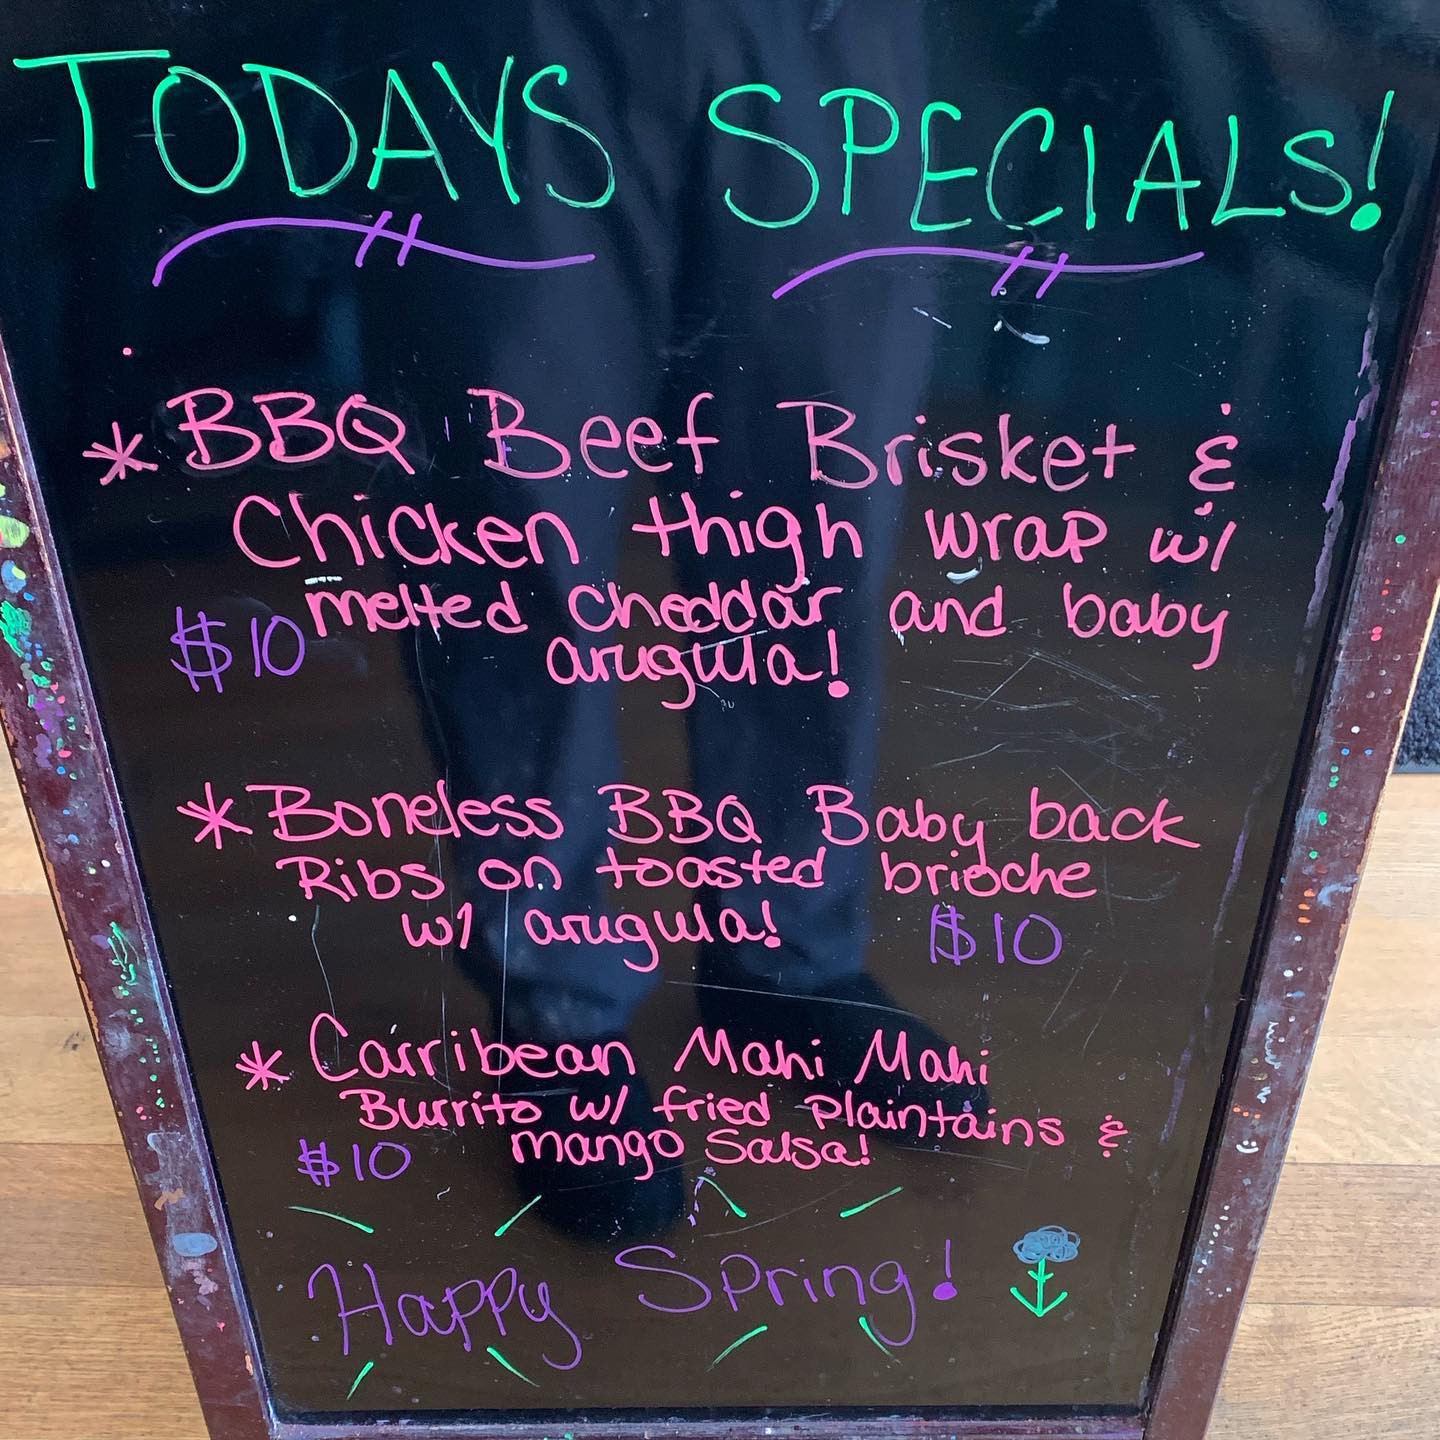 TODAYS SPECIALS!
* BBQ Beef Brisket &
Chicken thigh wrap w/
melted cheddar and baby
$10
arugula!
* Boneless BBQ Baby back
Ribs on toasted brioche
w/ arugula! $10
* Carribean Mahi Mahi
Burrito w/ fried plaintains &
mango Salsa!
$10
Happy Spring!